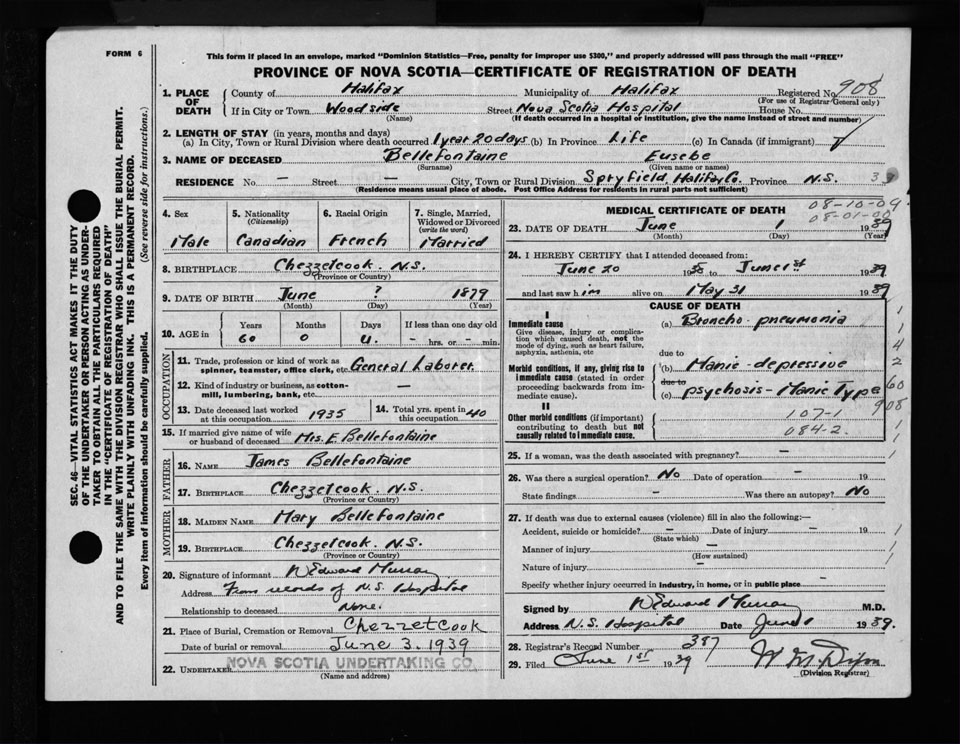 FORM 6
This form if placed in an envelope, marked "Dominion Statistics—Free, penalty for improper use $300," and properly addressed will pass through the mail "FREE"
PROVINCE OF NOVA SCOTIA—CERTIFICATE OF REGISTRATION OF DEATH
1. PLACE OF DEATH County of Halifax Municipality of Halifax Registered No. 908
(For use of Registrar General only)
If in City or Town Woodside Street Nova Scotia Hospital House No.
(Name) (If death occurred in a hospital or institution, give the name instead of street and number)
2. LENGTH OF STAY (in years, months and days)
(a) In City, Town or Rural Division where death occurred 1 year 20 days (b) In Province Life (c) In Canada (if immigrant)
3. NAME OF DECEASED Bellefontaine Eusebe
(Surname) (Given name or names)
RESIDENCE No. — Street — City, Town or Rural Division Spryfield, Halifax Co. Province N.S.
(Residence means usual place of abode. Post Office Address for residents in rural parts not sufficient)
4. Sex Male
5. Nationality (Citizenship) Canadian
6. Racial Origin French
7. Single, Married, Widowed or Divorced (write the word) Married
8. BIRTHPLACE Chezzetcook. N.S.
(Province or Country)
9. DATE OF BIRTH June ? 1879
(Month) (Day) (Year)
10. AGE in Years Months Days If less than one day old
60 0 u. - hrs. or - min.
OCCUPATION
11. Trade, profession or kind of work as spinner, teamster, office clerk, etc. General Laborer
12. Kind of industry or business, as cotton-mill, lumbering, bank, etc. —
13. Date deceased last worked at this occupation 1935
14. Total yrs. spent in this occupation 40
15. If married give name of wife or husband of deceased Mrs. E. Bellefontaine
FATHER
16. NAME James Bellefontaine
17. BIRTHPLACE Chezzetcook. N.S.
(Province or Country)
MOTHER
18. MAIDEN NAME Mary Bellefontaine
19. BIRTHPLACE Chezzetcook. N.S.
(Province or Country)
20. Signature of informant Edward Murray
Address From records of N.S. Hospital
Relationship to deceased None.
21. Place of Burial, Cremation or Removal Chezzetcook
Date of burial or removal June 3. 1939
22. UNDERTAKER NOVA SCOTIA UNDERTAKING CO.
(Name and address)
MEDICAL CERTIFICATE OF DEATH 08-10-09
08-01-00
23. DATE OF DEATH June 1 1939
(Month) (Day) (Year)
24. I HEREBY CERTIFY that I attended deceased from:
June 20 1938 to June 1st 1939
and last saw him alive on May 31 1939
CAUSE OF DEATH
I
Immediate cause (a) Broncho-pneumonia
Give disease, injury or complication which caused death, not the mode of dying, such as heart failure, asphyxia, asthenia, etc
due to
Morbid conditions, if any, giving rise to immediate cause (stated in order proceeding backwards from immediate cause).
(b) Manic-depressive
due to
(c) psychosis-Manic Type
II
Other morbid conditions (if important) contributing to death but not causally related to immediate cause.
107-1
084-2.
1
1
4
2
60
908
1
1
25. If a woman, was the death associated with pregnancy? —
26. Was there a surgical operation? No Date of operation — 19
State findings — Was there an autopsy? No
27. If death was due to external causes (violence) fill in also the following:—
Accident, suicide or homicide? — Date of injury — 19
(State which)
Manner of injury —
(How sustained)
Nature of injury —
Specify whether injury occurred in industry, in home, or in public place —
Signed by Edward Murray M.D.
Address N.S. Hospital Date June 1 1939.
28. Registrar's Record Number 387
29. Filed June 1st 1939
(Division Registrar)
SEC. 46—VITAL STATISTICS ACT MAKES IT THE DUTY
OF THE UNDERTAKER OR PERSON ACTING AS UNDER-
TAKER TO OBTAIN ALL THE PARTICULARS REQUIRED
IN THE "CERTIFICATE OF REGISTRATION OF DEATH"
AND TO FILE THE SAME WITH THE DIVISION REGISTRAR WHO SHALL ISSUE THE BURIAL PERMIT.
WRITE PLAINLY WITH UNFADING INK. THIS IS A PERMANENT RECORD.
Every item of information should be carefully supplied. (See reverse side for instructions.)